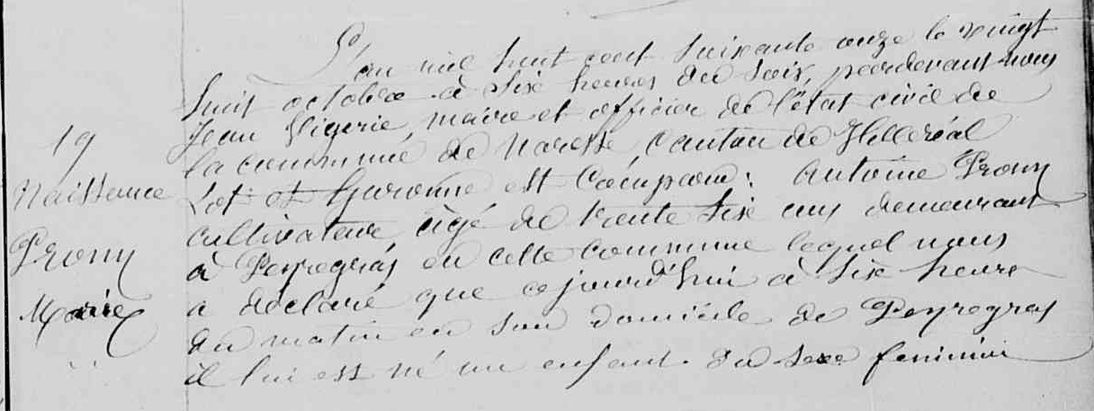 19
Naissance
Prony
Marie
L'an mil huit cent soixante onze le vingt
huit octobre à six heures du soir, pardevant nous
Jean Vigerie, maire et officier de l'état civil de
la commune de Naresse, canton de Villeréal
Lot et Garonne est comparu: Antoine Prony
cultivateur âgé de trente six ans demeurant
à Peyregras en cette commune lequel nous
a déclaré que cejourd'hui à six heure
du matin en son domicile de Peyregras
il lui est né un enfant du sexe feminin